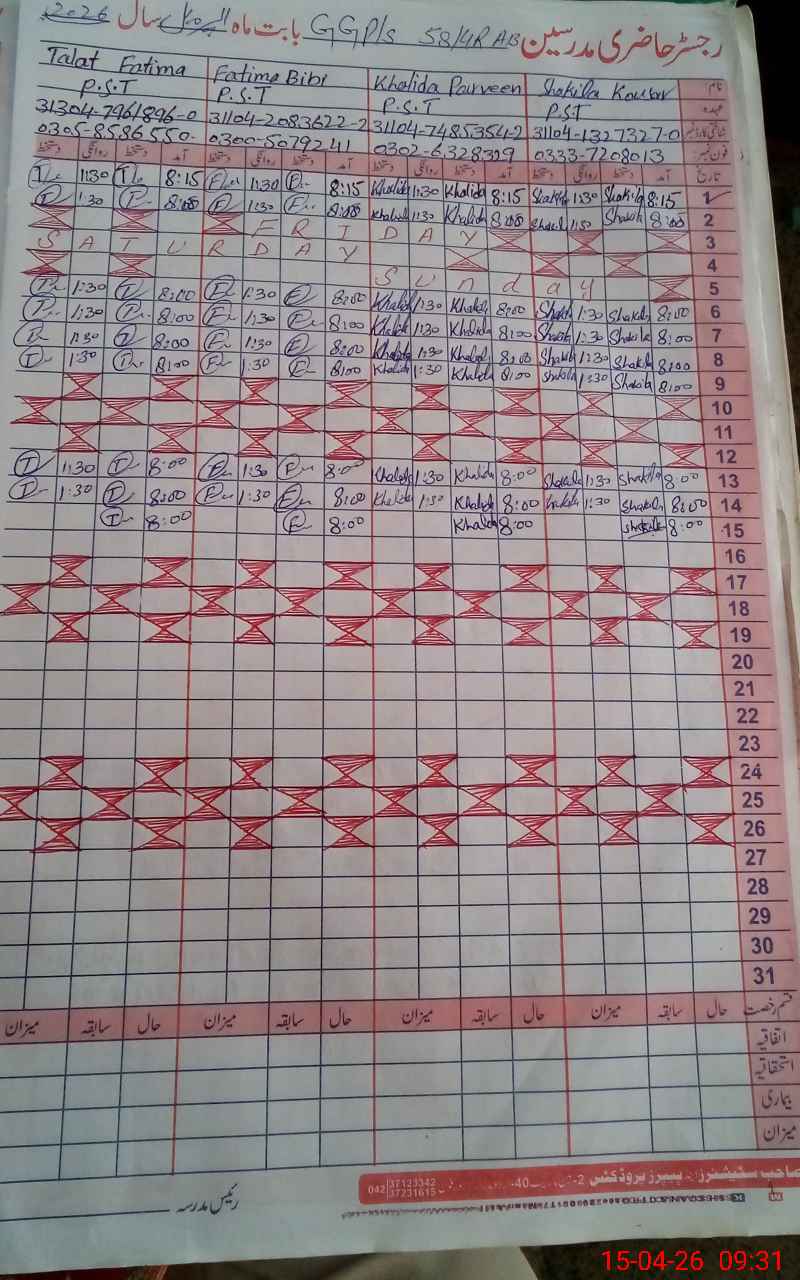 رجسٹر حاضری مدرسین GGP/s 58/4R AB بابت ماہ اپریل سال 2026
نام: Shakila Kousar Khalida Parveen Fatima Bibi Talat Fatima
عہدہ P.S.T P.S.T P.S.T P.S.T
شناختی کارڈ نمبر 31104-1327327-0 31104-7485354-2 31104-2083622-2 31304-7961896-0
فون نمبر: 0333-7208013 0302-6328329 0300-5079241 0305-8586550
تاریخ آمد دستخط روانگی دستخط آمد دستخط روانگی دستخط آمد دستخط روانگی دستخط آمد دستخط روانگی دستخط
1 8:15 Shakila 1:30 Shakila 8:15 Khalida 1:30 Khalida 8:15 1:30 8:15 1:30
2 8:00 Shakila 1:30 Shakil 8:00 Khalida 1:30 Khalida 8:00 1:30 8:00 1:30
3 F R I D A Y
4 S A T U R D A Y
5 S u n d a y
6 8:00 Shakila 1:30 Shakil 8:00 Khalida 1:30 Khalida 8:00 1:30 8:00 1:30
7 8:00 Shakila 1:30 Shakila 8:00 Khalida 1:30 Khalida 8:00 1:30 8:00 1:30
8 8:00 Shakila 1:30 Shakila 8:00 Khalida 1:30 Khalida 8:00 1:30 8:00 1:30
9 8:00 Shakila 1:30 Shakila 8:00 Khalida 1:30 Khalida 8:00 1:30 8:00 1:30
10
11
12
13 8:00 Shakila 1:30 Shakila 8:00 Khalida 1:30 Khalida 8:00 1:30 8:00 1:30
14 8:00 Shakila 1:30 Shakila 8:00 Khalida 1:30 Khalida 8:00 1:30 8:00 1:30
15 8:00 Shakila 8:00 Khalida 8:00 8:00
16
17
18
19
20
21
22
23
24
25
26
27
28
29
30
31
قسم رخصت حال سابقہ میزان حال سابقہ میزان حال سابقہ میزان حال سابقہ میزان
اتفاقیہ
استحقاقیہ
بیماری
میزان
صاحب سٹیشنرز اینڈ پیپرز پروڈکٹس 2- 40- 042 37123342 37231615
رئیس مدرسہ
15-04-26 09:31